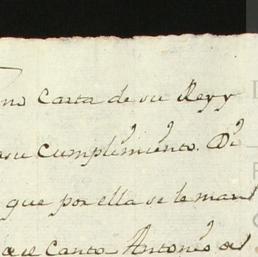 no Carta de su Rey y
su Cumplimiento. D
que por ella se le man
Canto Antonio de